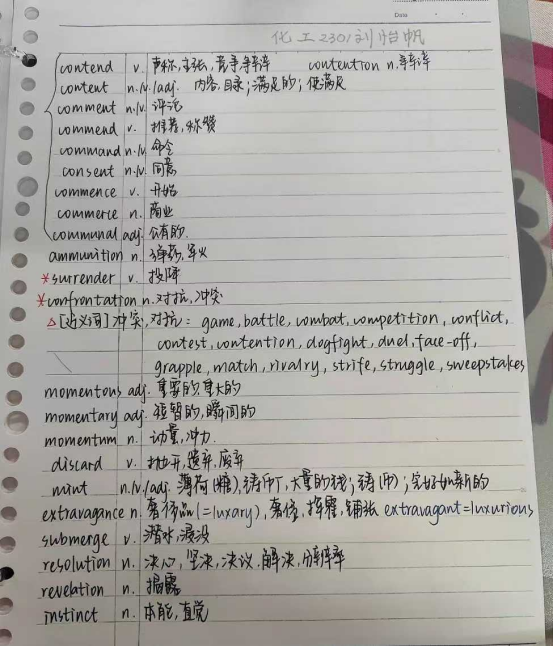 Date
化工2301刘怡帆
contend v. 声称,主张,竞争,争辩 contention n.争辩
content n./v./adj. 内容,目录;满足的;使满足
comment n./v. 评论
commend v. 推荐,称赞
command n./v. 命令
consent n./v. 同意
commence v. 开始
commerce n. 商业
communal adj. 公有的.
ammunition n. 弹药,军火
*surrender v. 投降
*confrontation n.对抗,冲突
△[近义词]冲突,对抗: game, battle, combat, competition, conflict,
contest, contention, dogfight, duel, face-off,
grapple, match, rivalry, strife, struggle, sweepstakes
momentous adj. 重要的,重大的
momentary adj. 短暂的,瞬间的
momentum n. 动量,冲力.
discard v. 抛弃,遗弃,废弃
mint n./v./adj. 薄荷(糖),铸币厂,大量的钱;铸(币);完好如新的
extravagance n. 奢侈品(=luxary),奢侈,挥霍,铺张 extravagant=luxurious
submerge v. 潜水,浸没
resolution n. 决心,坚决,决议.解决,分辨率
revelation n. 揭露
instinct n. 本能,直觉